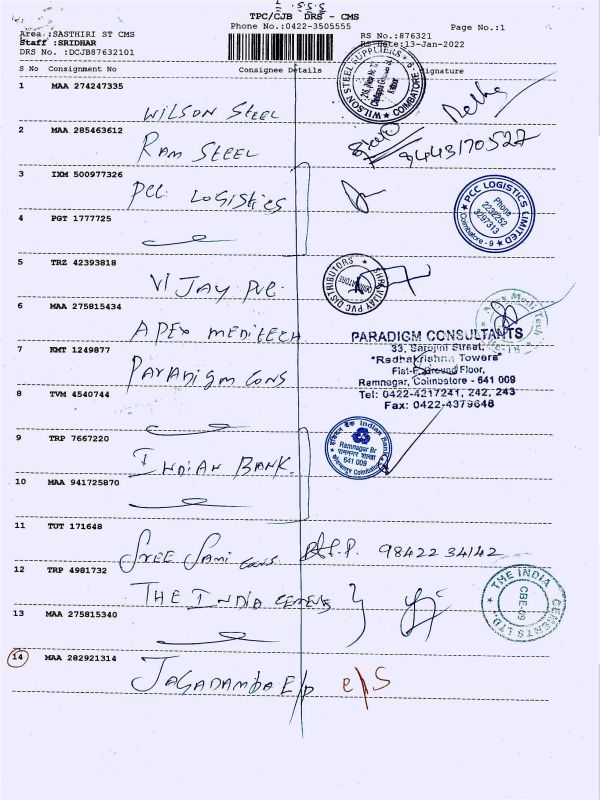 TPC/CJB DRS - CMS
Phone No.:0422-3505555
Page No.:1
Area :SASTHIRI ST CMS
RS No.:876321
Staff :SRIDHAR
RS Date:13-Jan-2022
DRS No. :DCJB87632101
S No Consignment No Consignee Details Signature
1 MAA 274247335
WILSON STEEL
WILSON STEEL SUPPLIERS COIMBATORE
2 MAA 285463612
RAM STEEL
9443170527
3 IXM 500977326
PCC LOGISTICS
PCC LOGISTICS LIMITED
Phone
2238252
3297313
Coimbatore - 9
4 PGT 1777725
5 TRZ 42393818
VIJAY PVC
SHRI VIJAY PVC DISTRIBUTORS
6 MAA 275815434
APEX MEDITECH
7 KMT 1249877
Paradigm Cons
PARADIGM CONSULTANTS
33, Sarojini Street,
"Radhakrishna Towers"
Flat-F, Ground Floor,
Ramnagar, Coimbatore - 641 009
Tel: 0422-4217241, 242, 243
Fax: 0422-4379648
8 TVM 4540744
9 TRP 7667220
INDIAN BANK
Indian Bank
Ramnagar Br
641 009
Coimbatore
10 MAA 941725870
11 TUT 171648
SREE SAMI CONS
98422 34142
12 TRP 4981732
THE INDIA CEMENS
THE INDIA CEMENTS LTD
CBE-09
13 MAA 275815340
14 MAA 282921314
JAGADAMBA E/P e/s